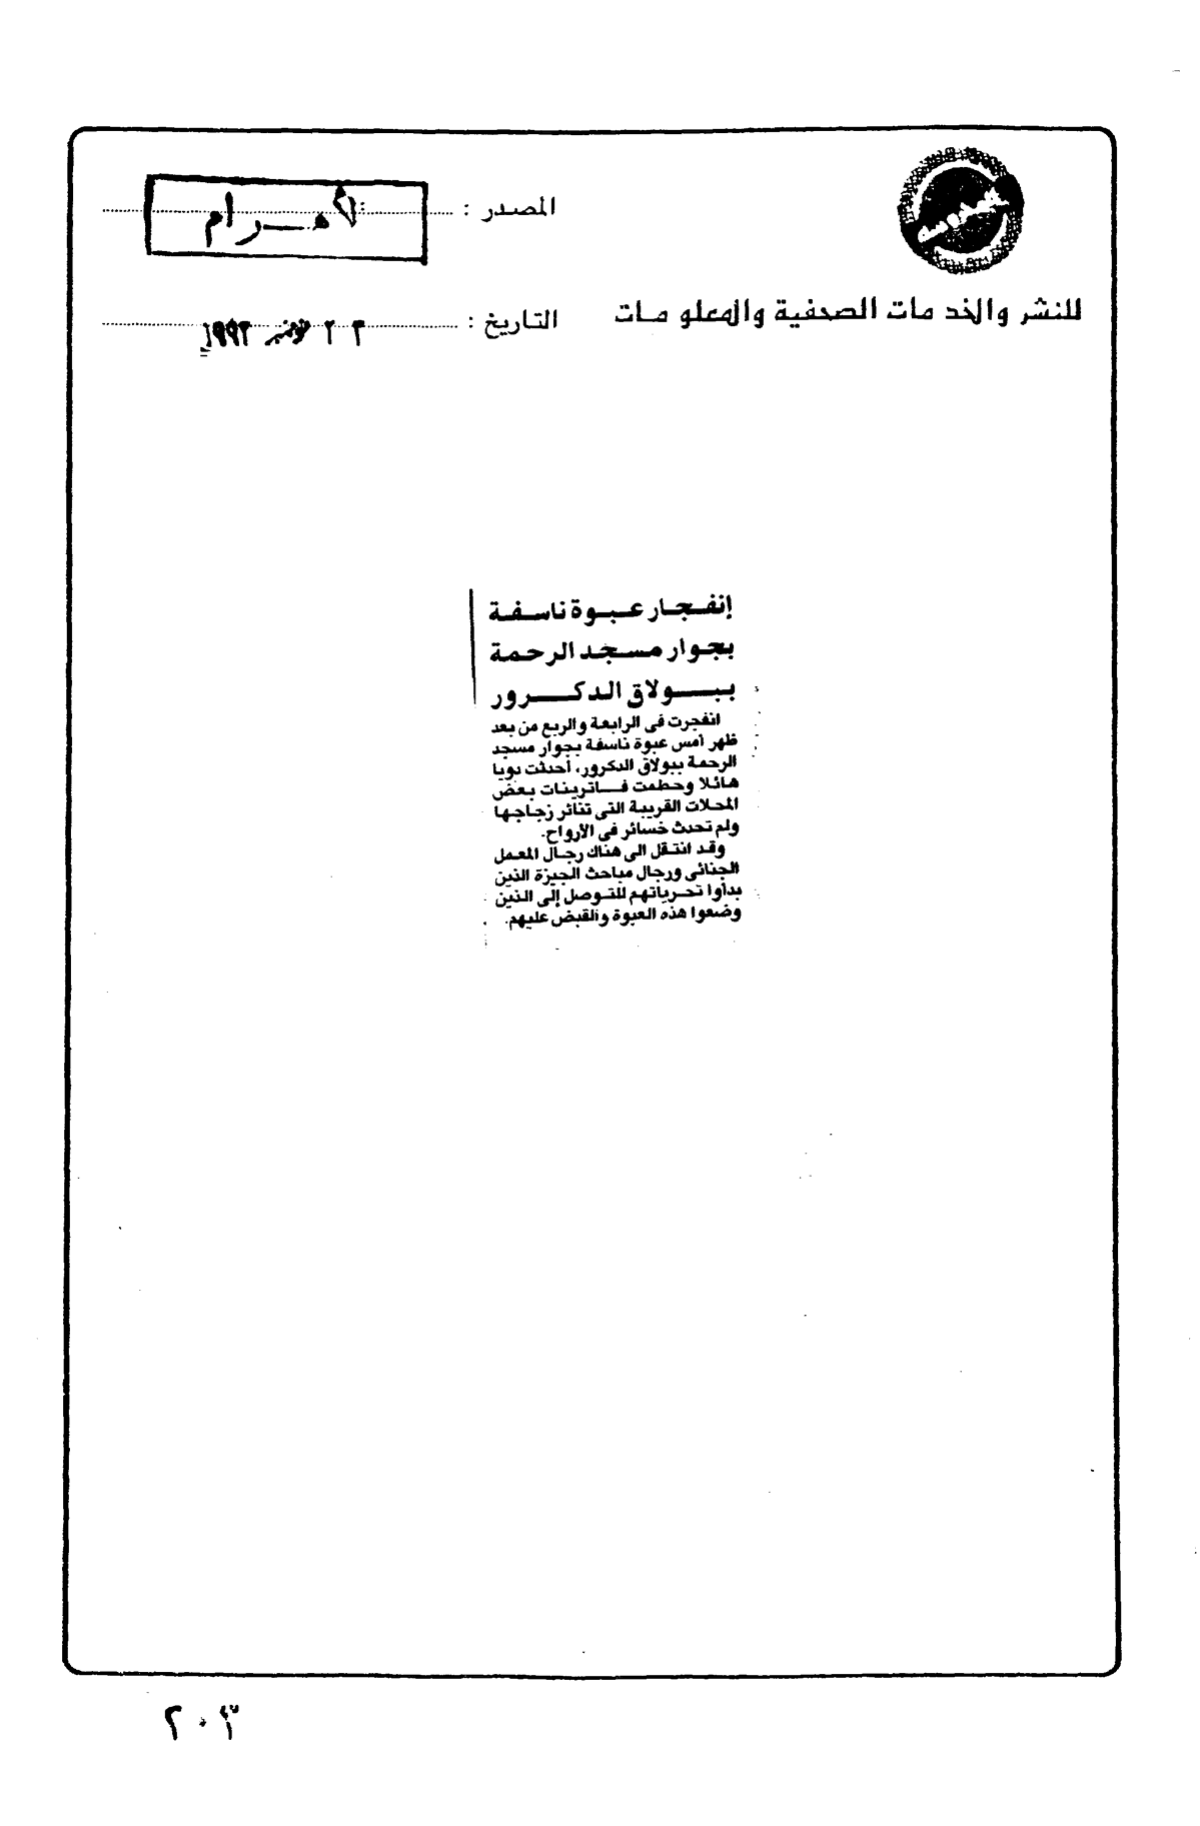 المصدر : الأهرام
للنشر والخدمات الصحفية والمعلومات
التاريخ : ٢٣ نوفمبر ١٩٩٣
إنفجار عبوة ناسفة
بجوار مسجد الرحمة
ببولاق الدكرور
انفجرت فى الرابعة والربع من بعد
ظهر أمس عبوة ناسفة بجوار مسجد
الرحمة ببولاق الدكرور، أحدثت دويا
هائلا وحطمت فاترينات بعض
المحلات القريبة التى تناثر زجاجها
ولم تحدث خسائر فى الأرواح.
وقد انتقل الى هناك رجال المعمل
الجنائى ورجال مباحث الجيزة الذين
بدأوا تحرياتهم للتوصل إلى الذين
وضعوا هذه العبوة والقبض عليهم.